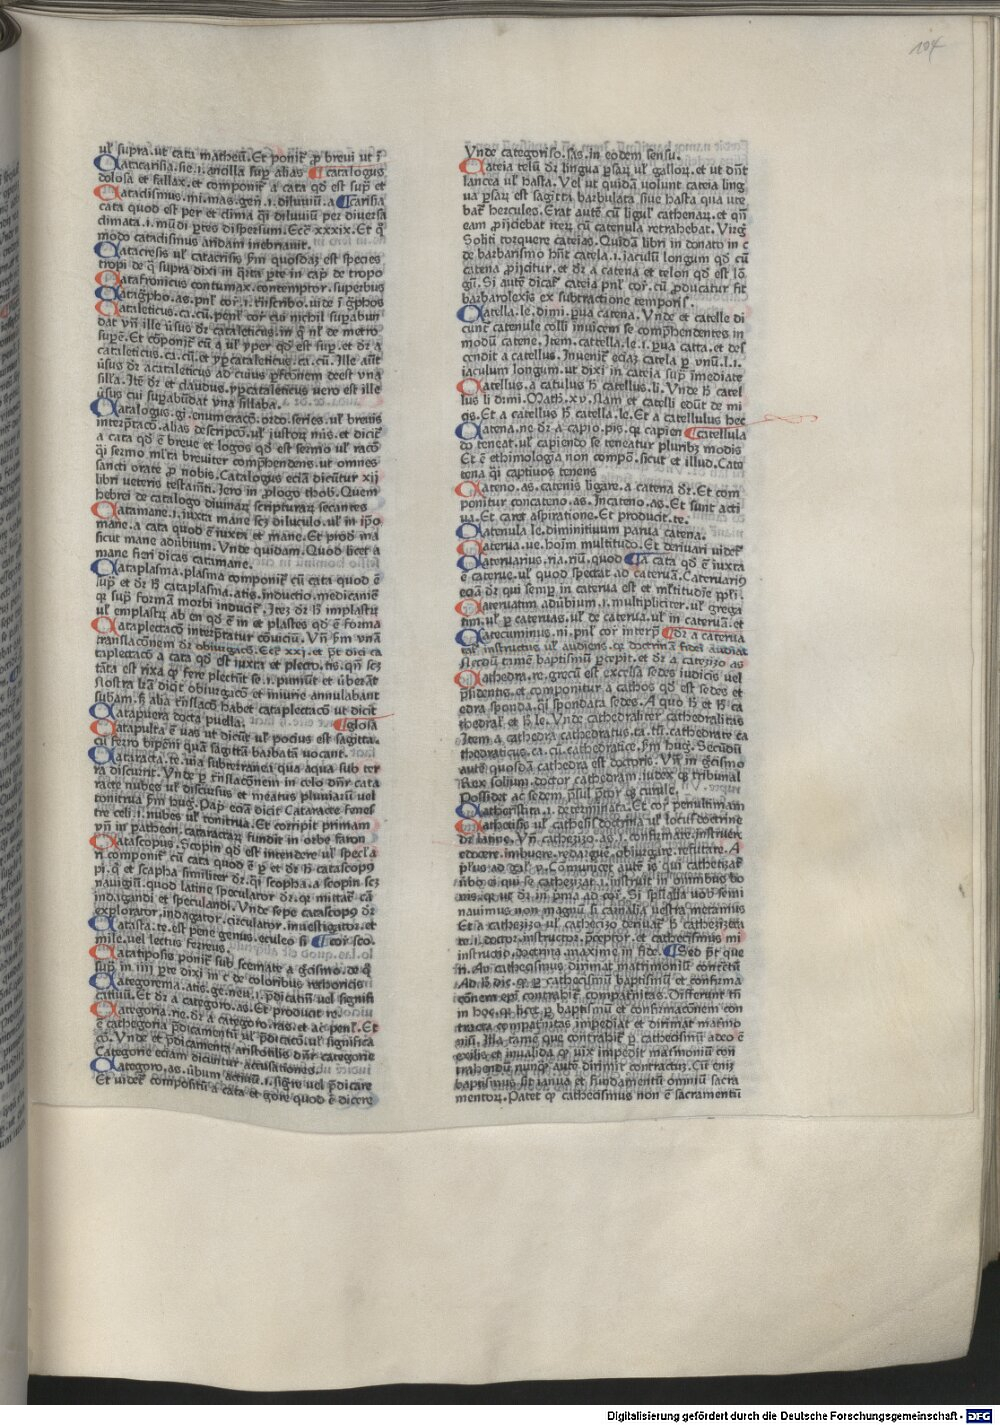 104
ul' supra. ut cata matheū. Et ponit᷑ ꝓ brevi ut ī
Catacarisia. sie. i. ancilla sup alias ¶ catalogus
dolosa et fallax. et componit᷑ a cata qd est sup̄ et
Cataclismus. mi. mas. gen̄. i. diluuiū. a ¶ carisia
cata quod est per et clima q̄i diluuiū per diuersa
climata. i. mūdi ꝑtes dispersum. Ecc̄ xxxix. Et q̄
modo cataclismus aridam inebriauit.
Catacresis ul' catacrisis s̄m quosdaʒ est species
tropi de q̄ supra dixi in q̄rta ꝑte in cap̄ de tropo
Catafronicus contumax. contemptor. superbus
Catag̅pho. as. pnl' cor. i. tn̄scribo. uide ī g̅phos
Cataleticus. ca. cū. penl' cor cui nichil supabun
dat vn̄ ille ūsus dr̄ cataleticus. in q̄ nl' de metro
supē. Et cōponit᷑ cū q̄ ul' yper qd est sup̄. et dr̄ a
cataleticus. ca. cū. et yp̄cataleticus. ca. cū. Ille aūt
ūsus dr̄ acataleticus ad cuius ꝑfc̄onem deest vna
sill'a. Itē dr̄ et claudus. yp̄cataleticus uero est ille
ūsus cui supabūdat vna sillaba.
Catalogus. gi. enumeracō. ordo. series. ul' breuis
interp̄taco. alias descripcō. ul' iustoꝝ mīs. et dicit᷑
a cata qd ē breue et logos qd est sermo ul' racō
q̄i sermo ml'ta breuiter comp̄hendens. ut omnes
sancti orate ꝓ nobis. Catalogus ecia dicūtur xij
libri ueteris testam̄ti. Iero in ꝓlogo thob. Quem
hebrei de catalogo diuinaꝝ scripturaꝝ secantes
Catamane. i. iuxta mane scʒ diluculo. ul' in ip̄o
mane. a cata quod ē iuxta et mane. Et prod ma
ficut mane adūbium. Vnde quidam. Quod licet a
mane fieri dicas catamane.
Cataplasma. plasma componit᷑ cū cata quod ē
sup̄ et dr̄ h̄ cataplasma. atis. inductio medicaniē
qʳ sup̄ formā morbi inducit᷑. Iteʒ dr̄ h̄ implastꝝ
ul' emplastꝝ ab en qd ē in et plastes qd ē forma
Cataplectacō interp̄tatur cōuiciū. Vn̄ s̄m vnā
translacōnem dr̄ obiurgacō. Ecc̄ xxi. et p̄t dici ca
taplectacō a cata qd est iuxta et plecto. tis. qn̄ scʒ
tāta est rixa qꝫ fere plectūt se. i. puniūt et ūberāt
Nostra lr̄a dicit obiurgacō et iniurie annulabant
subam. s̄ alia tn̄slacō habet cataplectacō ut dicit
Catapuera docta puella. ¶ glosa
Catapulta ē uas ut dicūt ul' pocius est sagitta.
cū ferro bip̄eni quā sagittā barbatā uocant.
Cataracta. te. uia subterranea qua aqua sub ter
ra discurrit. Vnde ꝑ tn̄slacōnem in celo dn̄r cata
racte nubes ul' discursus et meatus pluuiarū vel
tonitrua s̄m hug. Pap̄ eciā dicit Cataracte fenes
tre celi. i. nubes ul' tonitrua. Et corripit primam
vn̄ in patheon. cataractaꝝ fundit in orbe faron
Catascopus. Scopin qd est intendere ul' specl'a
ri componit᷑ cū cata quod ē ꝑ et dr̄ h̄ catascopꝰ
pi. q̄ et scapha similiter dr̄. q̄i scopha. a scopin scʒ
nauigiū. quod latine speculator dr̄. qʳ mittat᷑ cā
indagandi et speculandi. Vnde sepe catascopꝰ dr̄
explorator. indagator. circulator. inuestigator. et
Catasta. te. est pene genus. eculeo si ¶ cor sco.
mile. uel lectus ferreus
Catatiposis ponit᷑ sub scemate a g̅cismo. de q̄
sup̄ in iiij ꝑte dixi in c de coloribus rethoricis
Categorema. atis. ge. neu. i. p̄dicatiū vel signifi
catiuū. Et dr̄ a categoro. as. Et producit re
Categoria. rie. dr̄ a categoro. ras. et ac penl'. Et
ē cathegoria p̄dicamentū ul' p̄dicacō. ul' significa
cō. Vnde et p̄dicamenta aristotilis dn̄r categorie
Categorie eciam dicuntur accusationes.
Categoro. as. ūbum actiuū. i. sig̅re uel p̄dicare
Et uidet᷑ compositū a cata et gore quod ē dicere
Vnde categoriso. sas. in eodem sensu.
Cateia telū dr̄ lingua ꝑsaꝝ ul' galloꝝ. et ut dn̄t
lancea ul' hasta. Vel ut quidā uolunt cateia ling
ua ꝑsaꝝ est sagitta barbulata siue hasta qua ute
bat᷑ hercules. Erat autē cū ligul' cathenaꝝ. et qn̄
eam ꝓijciebat iteꝝ cū catenula retrahebat. Virg̅
Soliti torquere cateias. Quidā libri in donato in c
de barbarismo hn̄t catela. i. iaculū longum qd cū
catena ꝓijcitur. et dr̄ a catena et telon qd est lō
gū. Si autē dicat᷑ cateia pnl' cor. cū ꝓducatur fit
barbarolexis ex subtractione temporis.
Catella. le. dimi. ꝑua catena. Vnde et catelle di
cunt catenule colli inuicem se comp̄hendentes in
modū catene. Item. cattella. le. i. ꝑua catta. et des
cendit a catellus. Inuenit᷑ eciaʒ catela ꝑ vnū. l. i.
iaculum longum. ut dixi in cateia sup̄ īmediate
Catellus. a catulus h̄ catellus. li. Vnde h̄ catel
lus li dimi. Math. xv. Nam et catelli edūt de mi
cis. Et a catellus h̄ catella. le. Et a catellulus hec
Catena. ne dr̄ a capio. pis. qʳ capien ¶ catellula
do teneat. ul' capiendo se teneatur pluribꝫ modis
Et ē ethimologia non compō. sicut et illud. Cato
tena q̄i captiuos tenens
Cateno. as. catenis ligare. a catena dr̄. Et com
ponitur concateno. as. Incateno. as. Et sunt acti
ua. Et caret aspiratione. Et producit. te.
Catenula le. diminitiuum parua catena.
Caterua. ue. hoīm multitudo. Et deriuari uidet᷑
Cateruarius. ria. riū. quod ¶ a cata qd ē iuxta
ē caterue. ul' quod spectat ad cateruā. Cateruariꝰ
eciā dr̄ qui semꝑ in caterua est et ml'titudīe ppl'i.
Cateruatim adūbium. i. multipliciter. ul' grega
tim. ul' ꝑ cateruas. ul' de caterua. ul' in cateruā. et
Catecuminus. ni. pnl' cor interp̄ ¶ dr̄ a caterua
tat᷑ instructus ul' audiens. qʳ doctrinā fidei audiat
Necdū tamē baptismū ꝑcepit. et dr̄ a catezizo as
Cathedra. re. grecū est excelsa sedes iudicis uel
p̄sidentis. et componitur a cathos qd est sedes et
edra sponda. q̄i spondata sedes. A quo h̄ et h̄ ca
thedral' et h̄ le. Vnde cathedraliter cathedralitas
Item a cathedra cathedratus. ta. tū. cathedrate ca
thedraticus. ca. cū. cathedratice. s̄m hug. Secūdū
autē quosdā cathedra est doctoris. Vn̄ in g̅cismo
Rex solium. doctor cathedram. iudex qꝫ tribunal
Possidet ac sedem. p̄sul p̄tor qꝫ curule.
Catheristita. i. determinata. Et cor penultimam
Cathecisis ul' cathesis doctrina ul' locus doctrine
dr̄ latine. Vn̄ cathezizo. as. i. confirmare. instruere
edocere. imbuere. redarguere. obiurgare. refutare. A
p̄lus ad Gal' v. Comunicet autē is qui cathetizat᷑
ūbo ei qui se cathezizat. i. instruit in omnibus bo
nis. qʳ ut dr̄ in p̄ma ad cor̄. Si sp̄ūalia uob semi
nauimus non magnū si carnalia uestra metamus
Et a cathezizo ul' cathecizo deriuat᷑ h̄ cathezizeta
te. i. doctor. instructor. p̄ceptor. et cathecismus mi
instructio. doctrina. maxime in fide. ¶ Sed p̄t que
ri. An cathecismus dirimat matrimoniū contctū
Ad h̄ dic. qʳ ꝑ cathecismū baptismū et confirma
cōnem eps' contrahit᷑ compat̄nitas. Differunt tn̄
in hoc. qʳ licet ꝑ baptismū et confirmacōnem con
tracta compat̄nitas impediat et dirimat mat̄mo
niū. Illa tamē que contrahit᷑ ꝑ cathecismū adeo ē
exilis et inualida qʳ uix impedit mat̄moniū con
trahendū nunqʒ autē dirimit contractuʒ. Cū eniʒ
baptismus sit ianua et fundamentū omniū sacra
mentoꝝ. Patet qʳ cathecismus non ē sacramentū
Digitalisierung gefördert durch die Deutsche Forschungsgemeinschaft - DFG